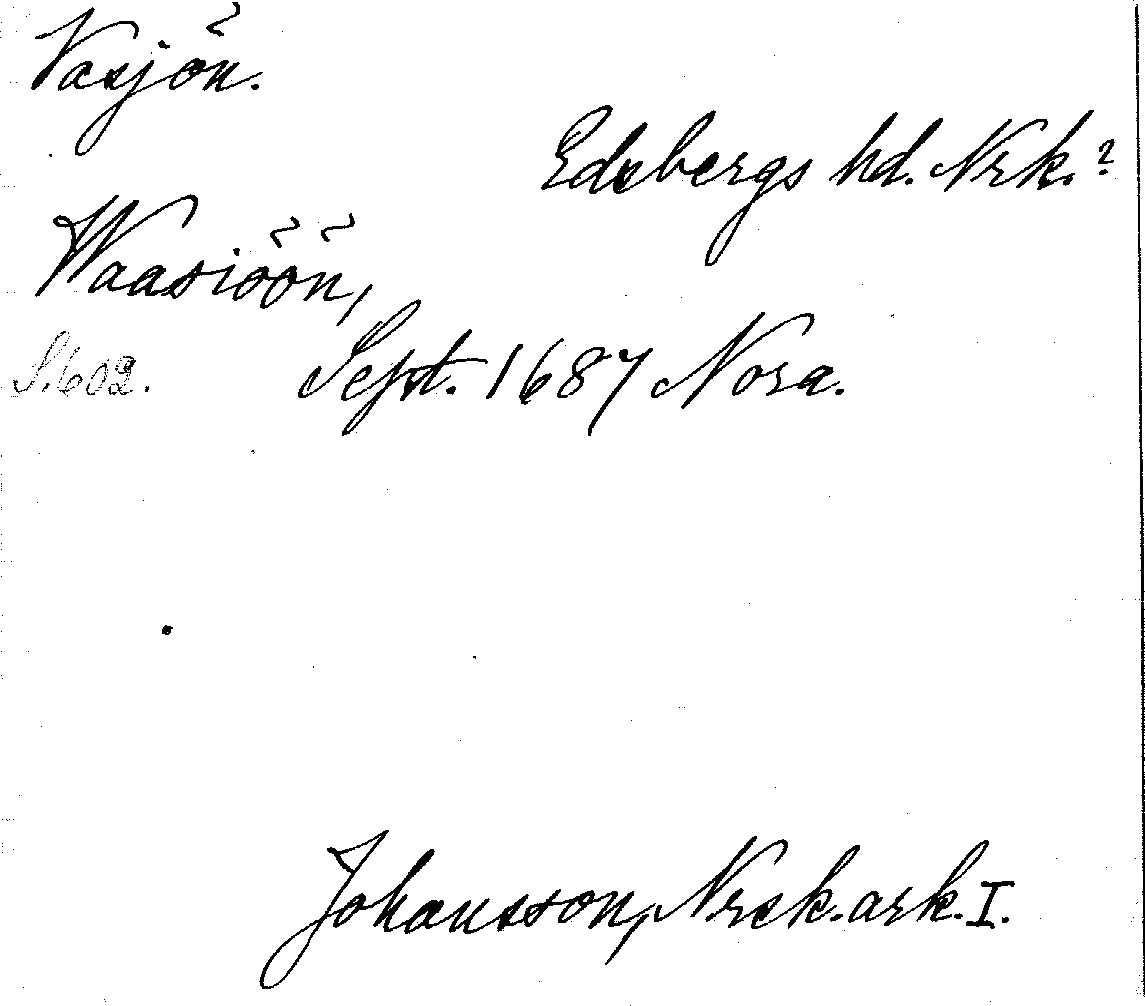 Vasjön.
Edsbergs hd. Nrk.?
Waasiöön,
S.602. Sept. 1687 Nora.
Johansson, Nrsk. ark. I.